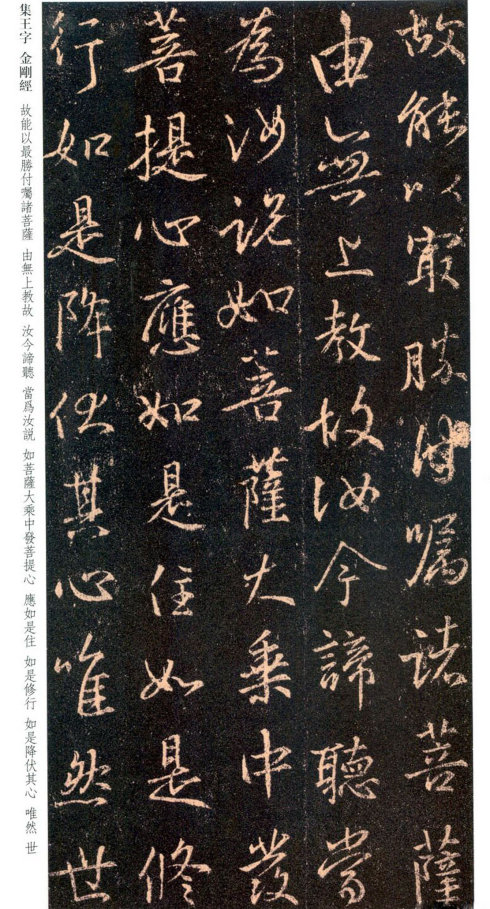 故能以最勝付囑諸菩薩
由無上教故汝今諦聽當
為汝説如菩薩大乘中發
菩提心應如是住如是修
行如是降伏其心唯然世
集王字 金剛經 故能以最勝付囑諸菩薩 由無上教故 汝今諦聽 當爲汝説 如菩薩大乘中發菩提心 應如是住 如是修行 如是降伏其心 唯然 世